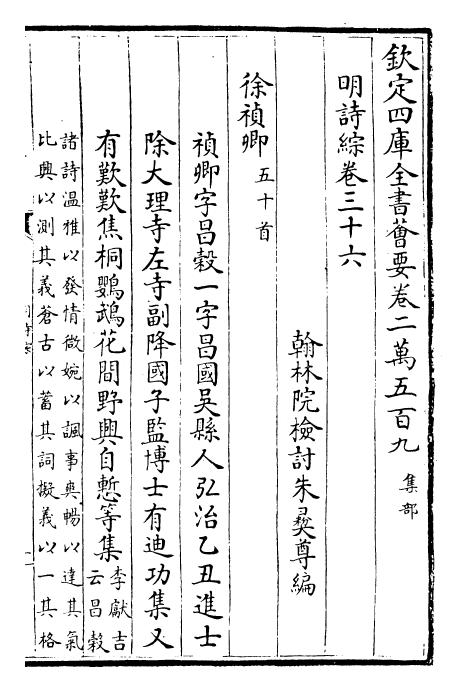 欽定四庫全書薈要卷二萬五百九 集部
明詩綜卷三十六
翰林院檢討朱彛尊編
徐禎卿 五十首
禎卿字昌穀一字昌國吳縣人弘治乙丑進士
除大理寺左寺副降國子監博士有迪功集又
有歎歎焦桐鸚鵡花間野興自慙等集 李獻吉
云昌穀
諸詩温雅以發情微婉以諷事爽暢以達其氣
比興以測其義蒼古以蓄其詞擬義以一其格